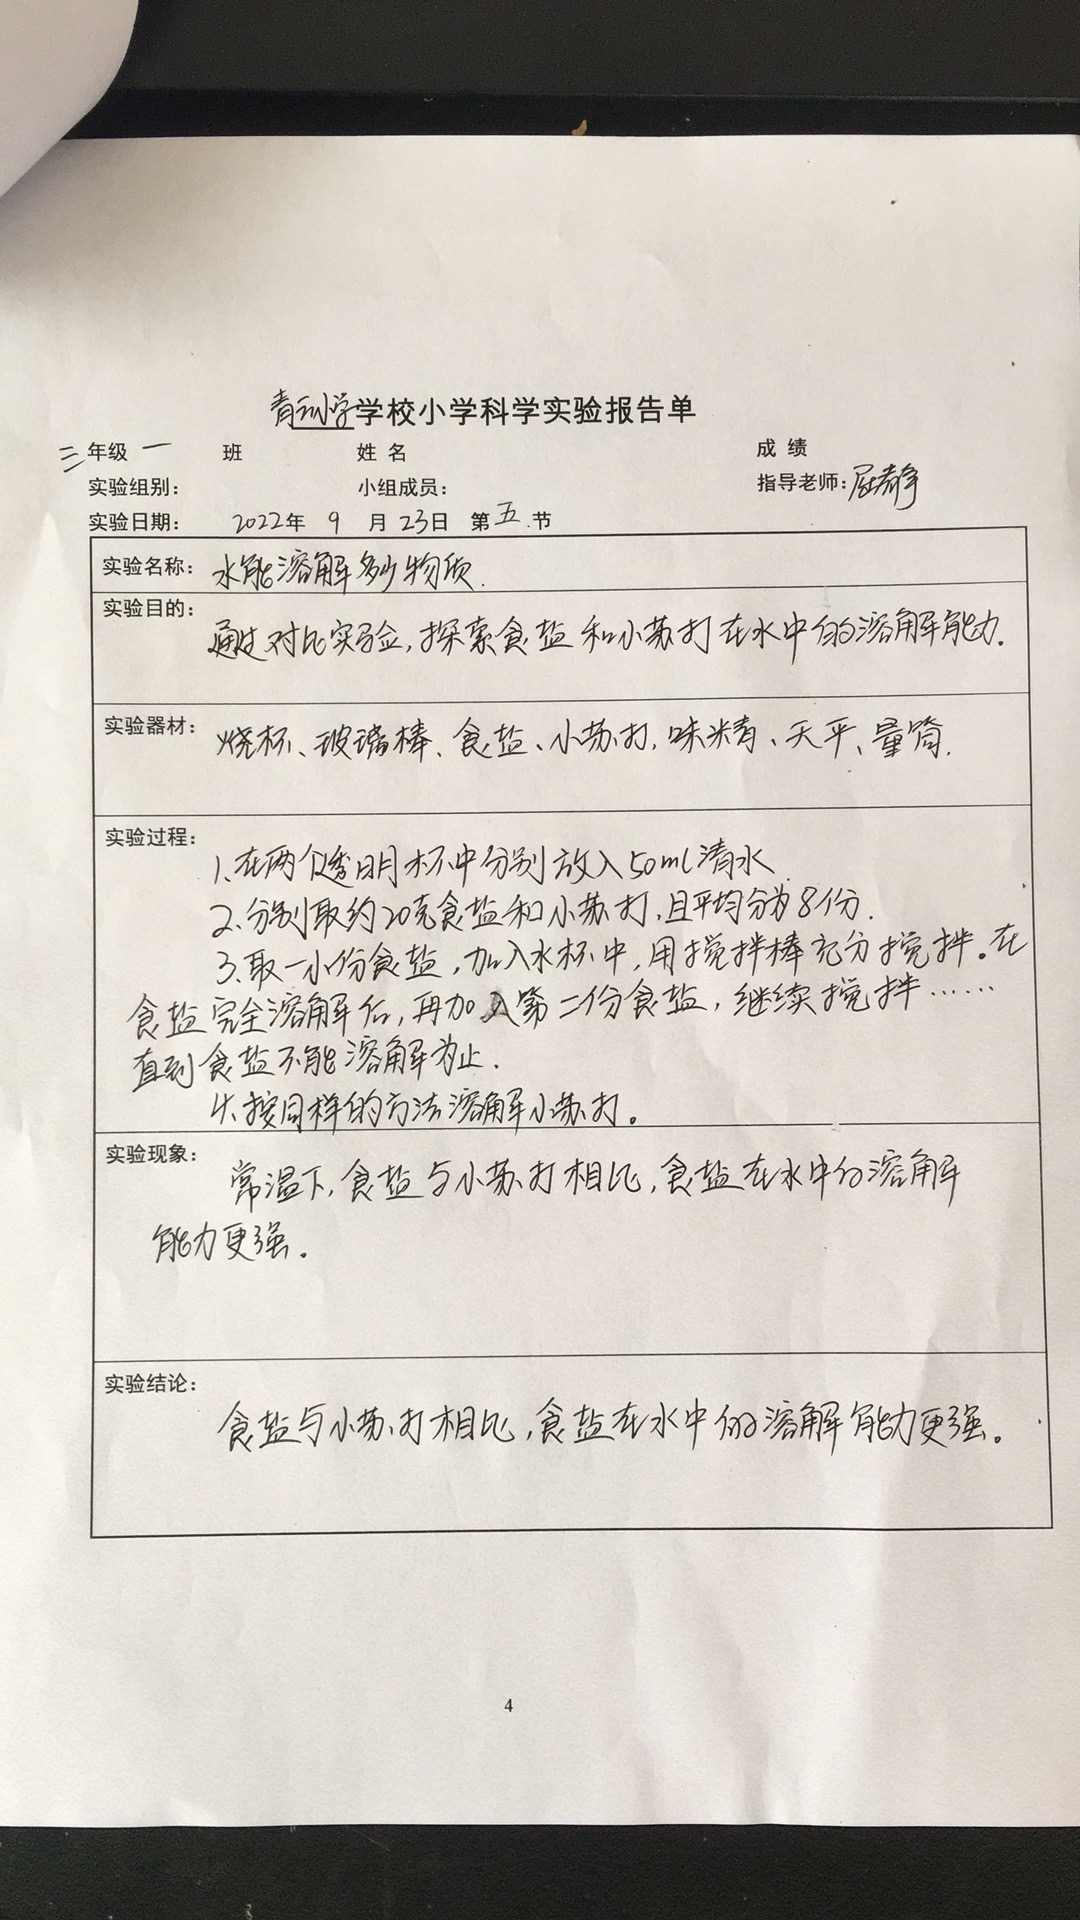 学校小学科学实验报告单
三年级一 班 姓名 成绩
实验组别: 小组成员: 指导老师:
实验日期: 2022年 9 月 23日 第五节
实验名称: 水能溶解多少物质.
实验目的: 通过对比实验,探索食盐和小苏打在水中的溶解能力.
实验器材: 烧杯、玻璃棒、食盐、小苏打,味精、天平、量筒.
实验过程: 1.在两个透明杯中分别放入50ml清水.
2.分别取约20克食盐和小苏打,且平均分为8份.
3.取一小份食盐,加入水杯中,用搅拌棒充分搅拌。在
食盐完全溶解后,再加入第二份食盐,继续搅拌……
直到食盐不能溶解为止.
4.按同样的方法溶解小苏打。
实验现象: 常温下,食盐与小苏打相比,食盐在水中的溶解
能力更强。
实验结论: 食盐与小苏打相比,食盐在水中的溶解能力更强。
4